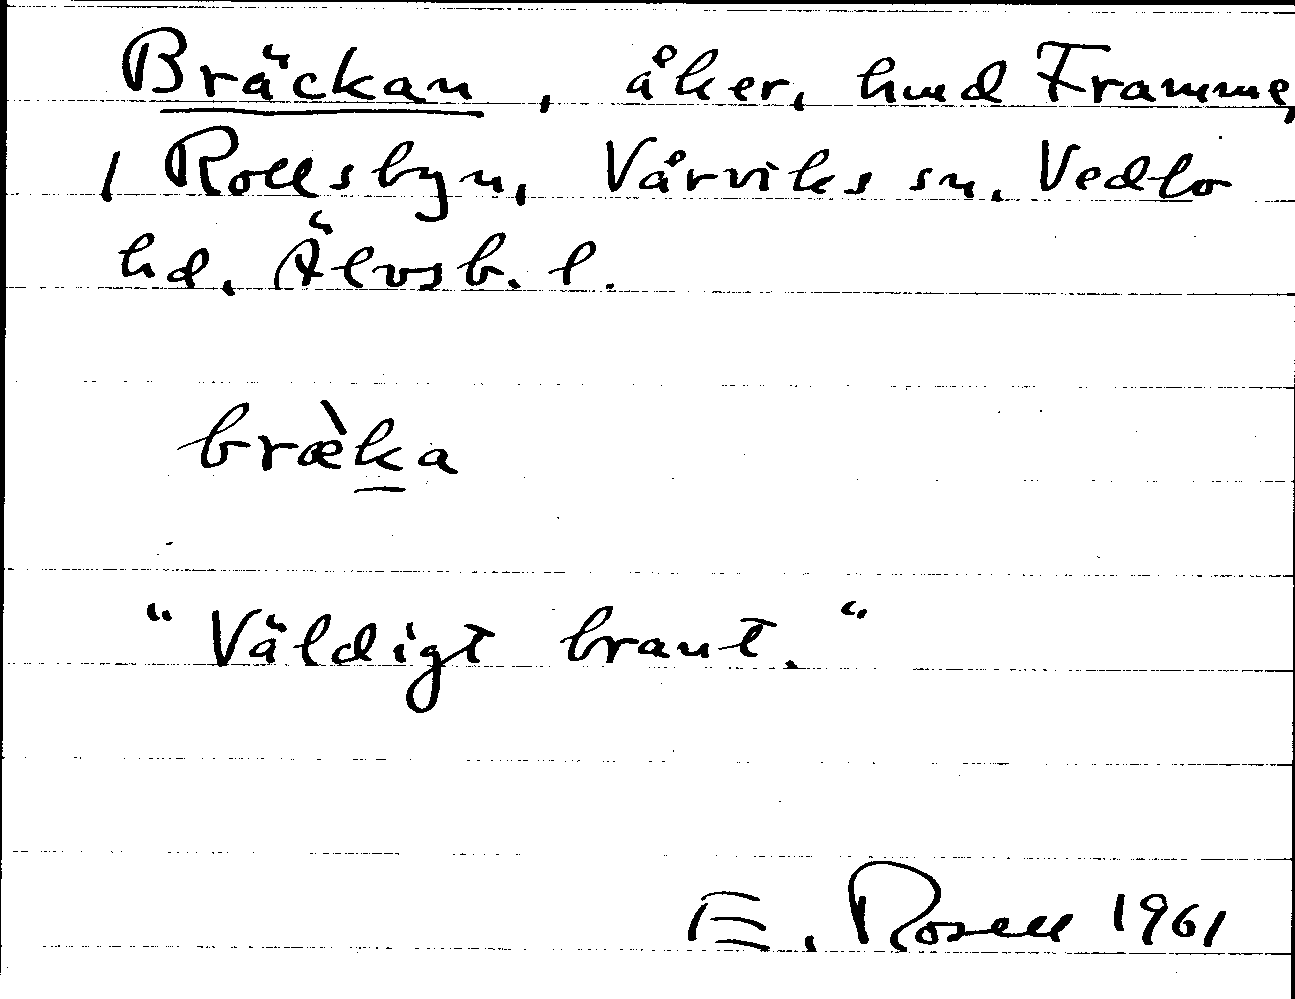 Bräckan, åker, hmd Framme,
1 Rollsbyn, Vårviks sn. Vedbo
hd. Älvsb. l.
bræ̀ka
"Väldigt brant."
E. Rosell 1961